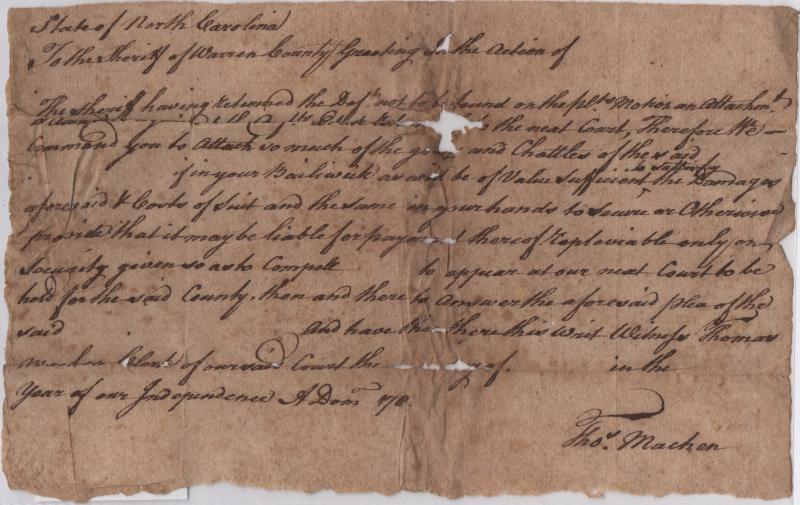 State of North Carolina
To the Sheriff of Warren County Greeting In the Action of
The Sheriff having Returned the Deft not to be found on the plts Motion an Attachmt
the next Court, Therefore We
Command you to Attach so much of the goods and Chattles of the said
if in your Bailiwick as will be of Value sufficient to sattisfy the Damages
aforesaid & Costs of Suit and the same in your hands to Secure or Otherwise
provide that it may be liable for payment thereof Repleviable only on
Security given so as to Compell to appear at our next Court to be
held for the said County, then and there to Answer the aforesaid plea of the
said And have then there this Writ Witness Thomas
Machen Clerk of our said Court the day of. in the
Year of our Independence A Dom 178.
Thos. Machen